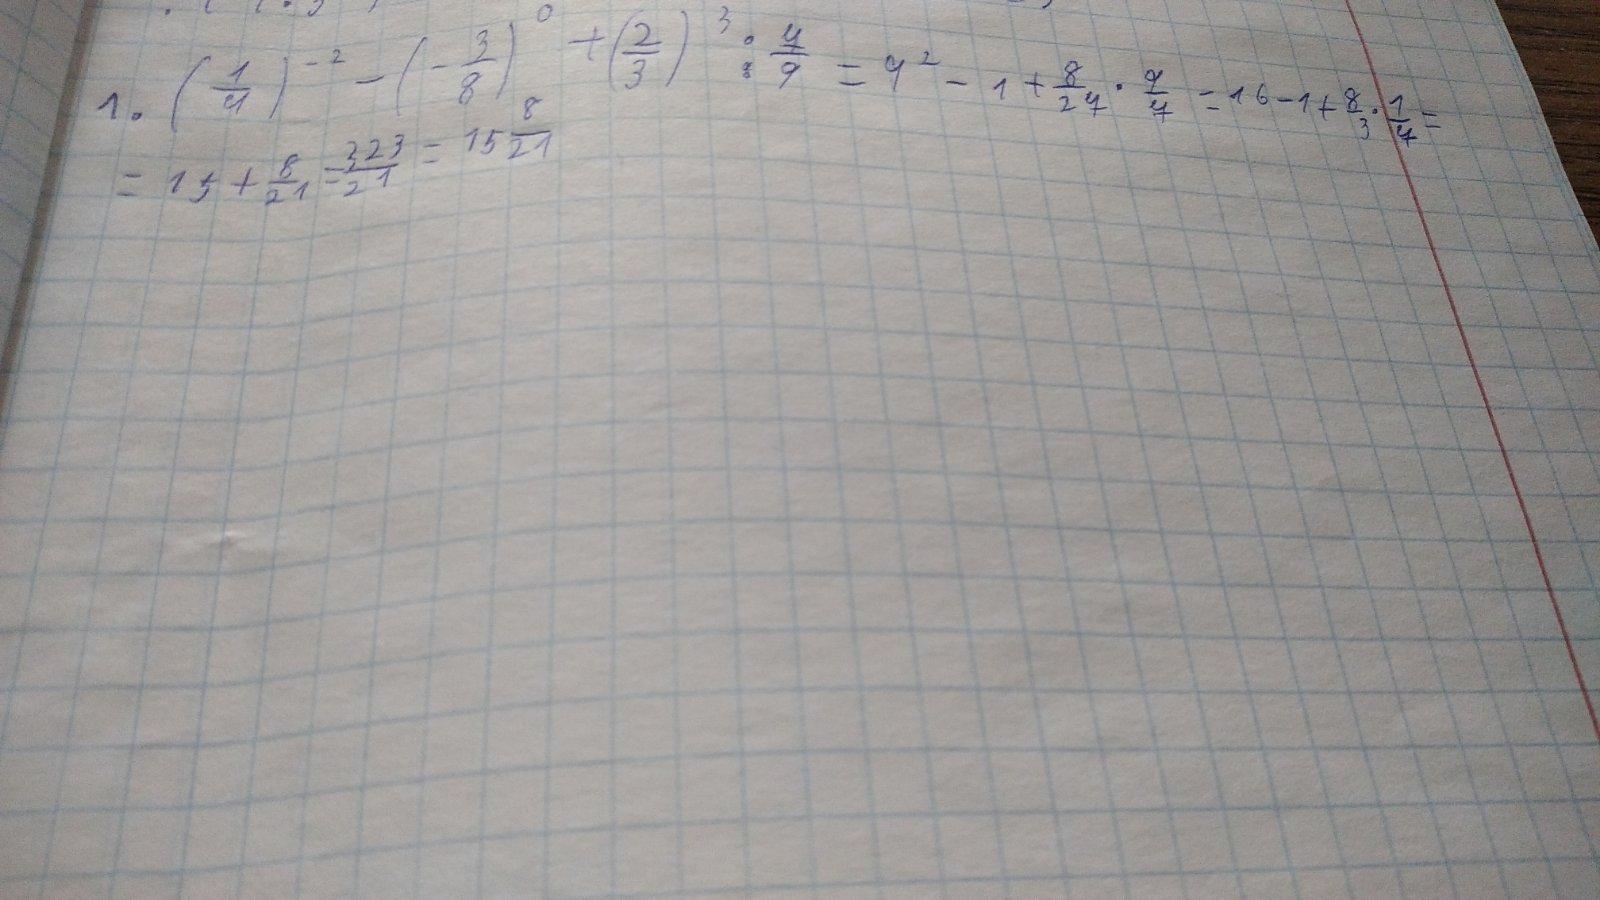 1. (1/4)^-2 - (-3/8)^0 + (2/3)^3 : 7/9 = 4^2 - 1 + 8/27 · 9/7 = 16 - 1 + 8/3 · 1/7 =
= 15 + 8/21 = 323/21 = 15 8/21